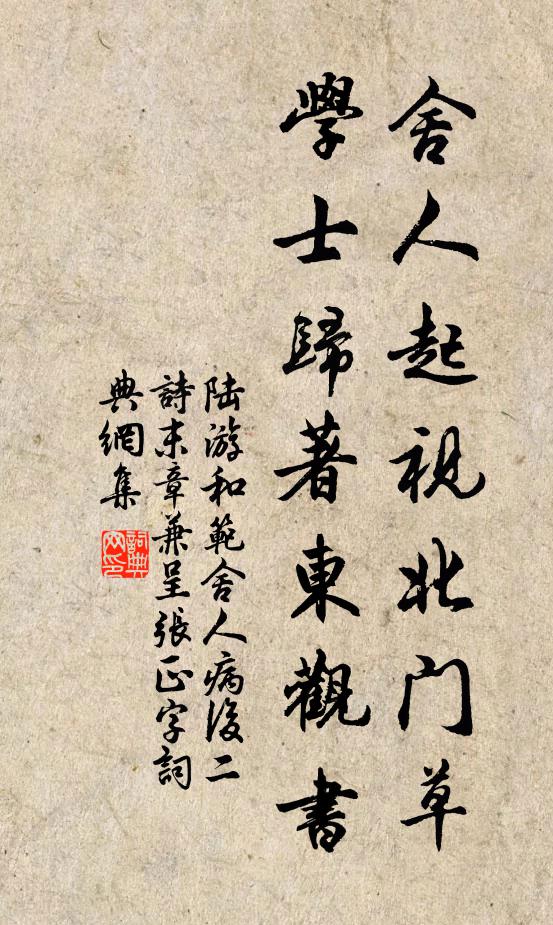 舍人起視北门草
學士歸著東觀書
陆游和範舍人病後二
詩末章兼呈張正字詞
典網集
詞典网印